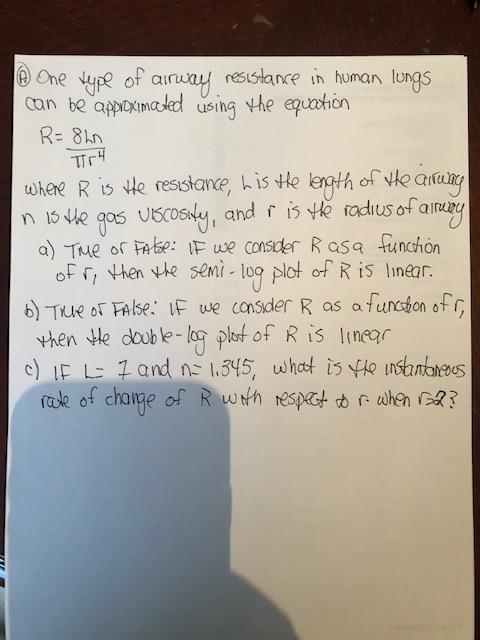 Ⓐ One type of airway resistance in human lungs
can be approximated using the equation
R= 8Ln
πr⁴
where R is the resistance, L is the length of the airway
n is the gas viscosity, and r is the radius of airway
a) True or False: IF we consider R as a function
of r, then the semi-log plot of R is linear.
b) True or False: IF we consider R as a function of r,
then the double-log plot of R is linear
c) IF L= 7 and n= 1.345, what is the instantaneous
rate of change of R with respect to r when r=2?